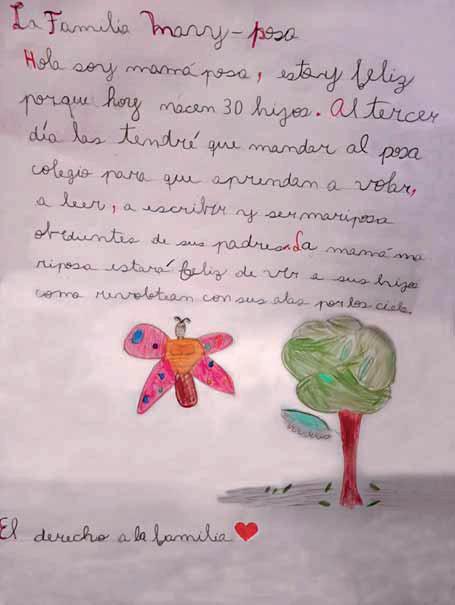 La Familia Mary-posa
Hola soy mamá posa, estoy feliz
porque hoy nacen 30 hijos. Al tercer
día las tendré que mandar al posa
colegio para que aprendan a volar,
a leer, a escribir y ser mariposa
obedientes de sus padres. La mamá ma
riposa estará feliz de ver a sus hijos
como revolotean con sus alas por los cielo.
El derecho a la familia